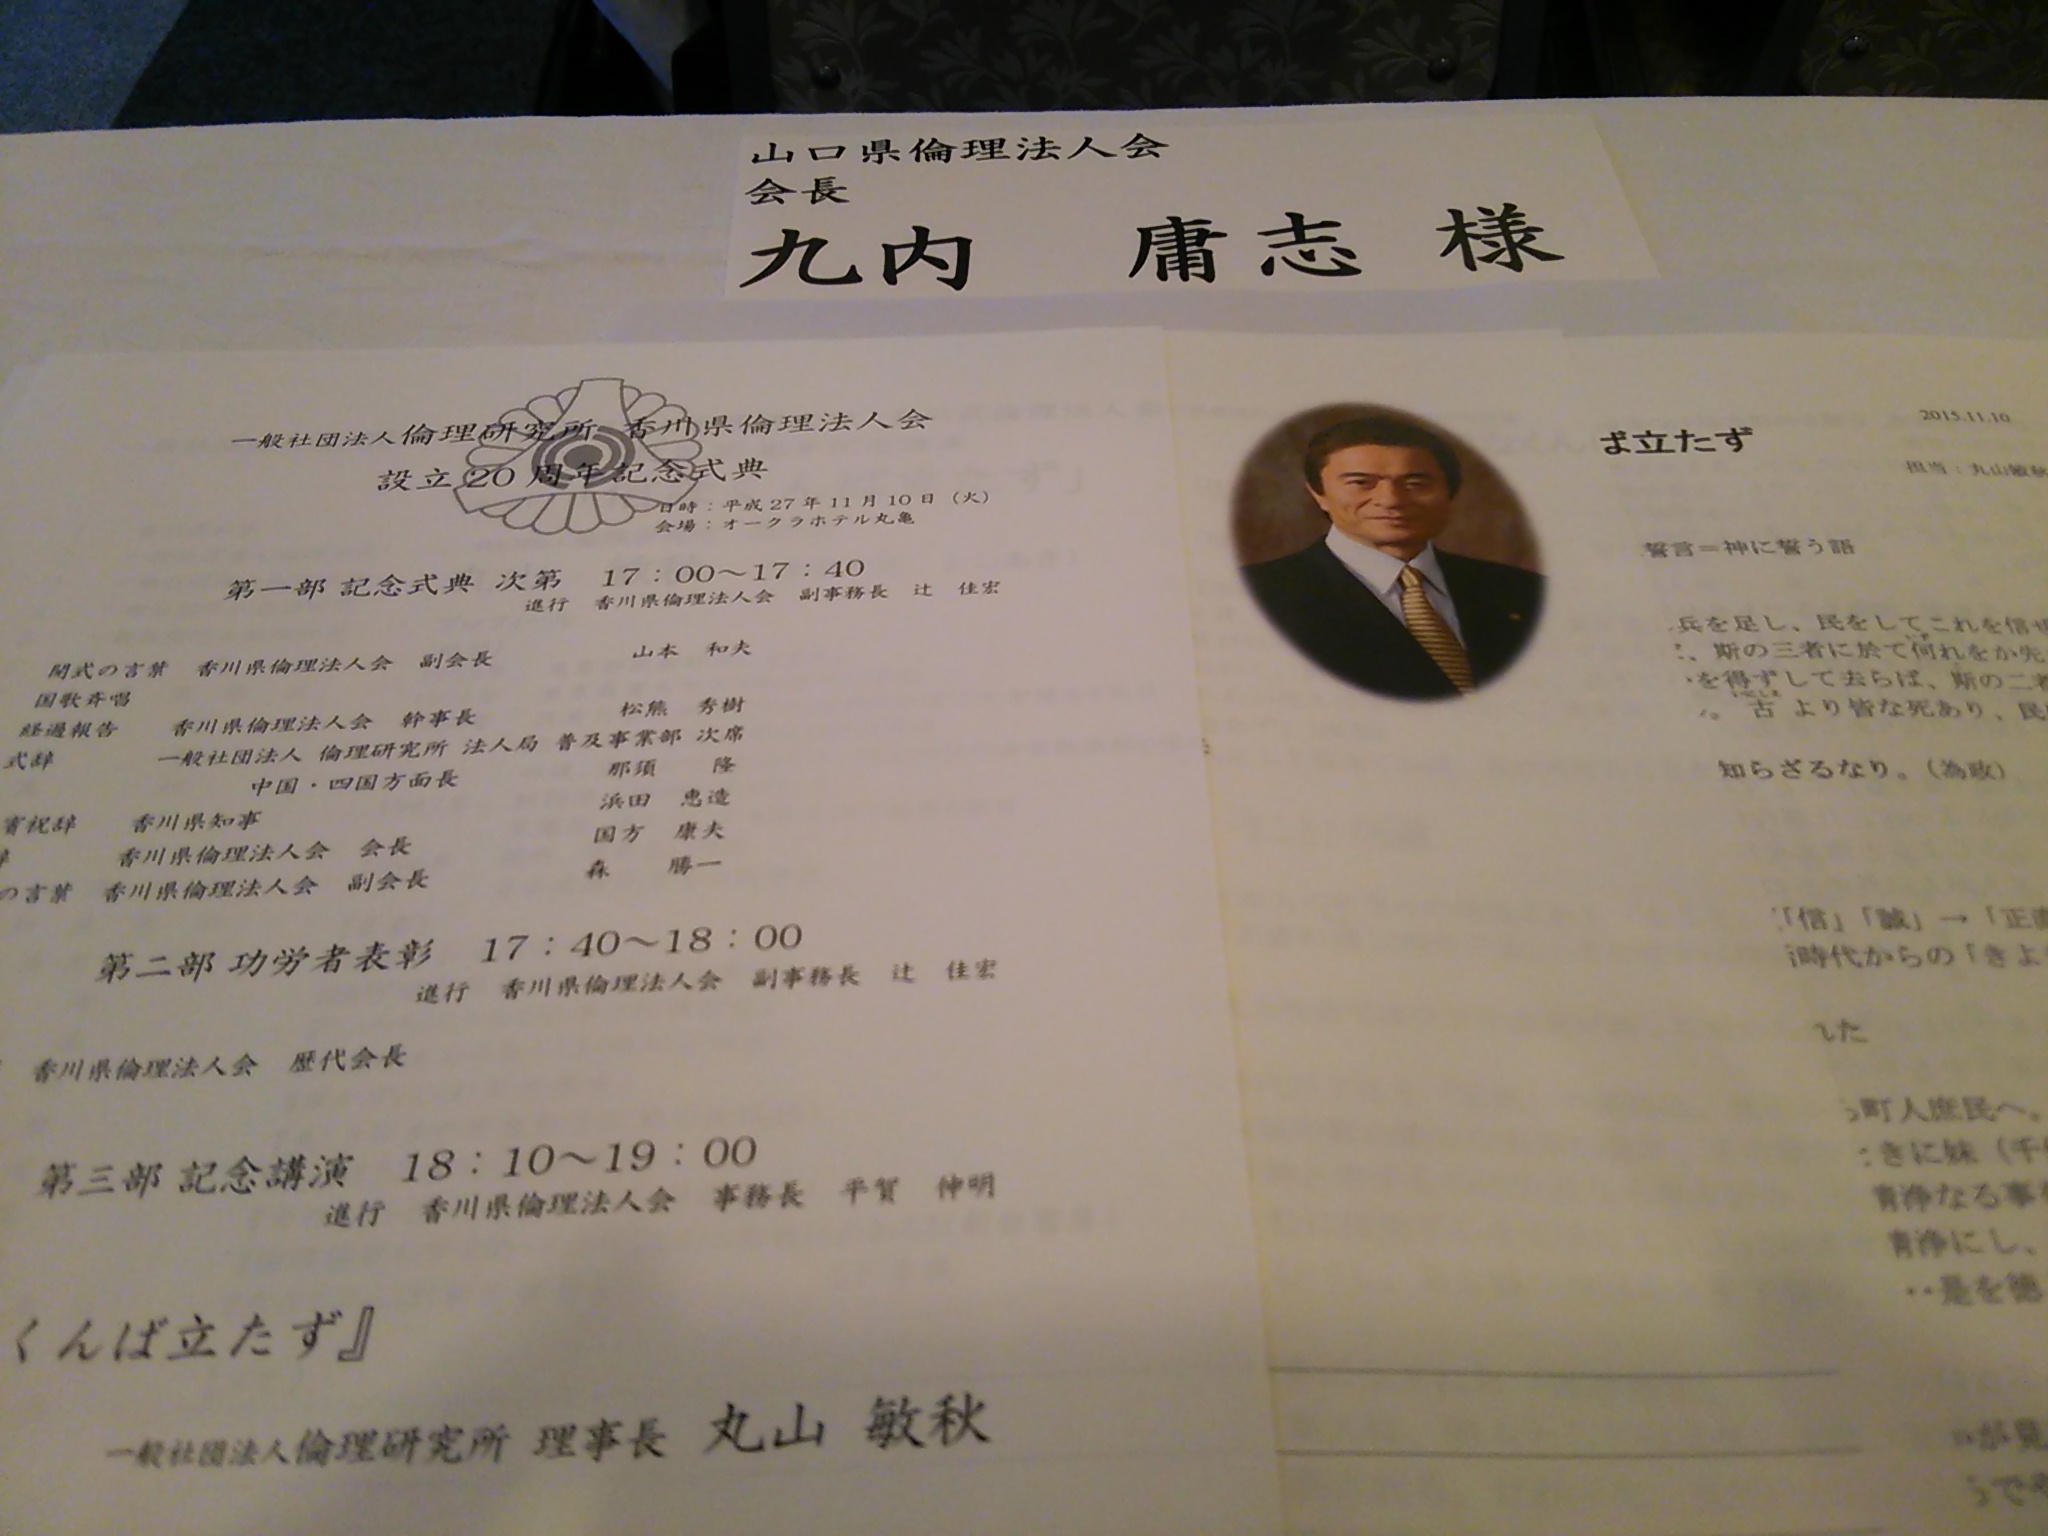 山口県倫理法人会
会長
九内 庸志 様
一般社団法人倫理研究所 香川県倫理法人会
設立20周年記念式典
日時：平成27年11月10日（火）
会場：オークラホテル丸亀
第一部 記念式典 次第 17：00～17：40
進行 香川県倫理法人会 副事務長 辻 佳宏
開式の言葉 香川県倫理法人会 副会長 山本 和夫
国歌斉唱
経過報告 香川県倫理法人会 幹事長 松熊 秀樹
式辞 一般社団法人 倫理研究所 法人局 普及事業部 次席
中国・四国方面長 那須 隆
賓祝辞 香川県知事 浜田 恵造
香川県倫理法人会 会長 国方 康夫
の言葉 香川県倫理法人会 副会長 森 勝一
第二部 功労者表彰 17：40～18：00
進行 香川県倫理法人会 副事務長 辻 佳宏
香川県倫理法人会 歴代会長
第三部 記念講演 18：10～19：00
進行 香川県倫理法人会 事務長 平賀 伸明
くんば立たず』
一般社団法人倫理研究所 理事長 丸山 敏秋
2015.11.10
ば立たず
担当：丸山敏秋
誓言＝神に誓う語
兵を足し、民をしてこれを信ぜ
、斯の三者に於て何れをか先
を得ずして去らば、斯の二者
。古より皆な死あり、民
いにしえ
知らざるなり。（為政）
「信」「誠」→「正直
時代からの「きよ
した
町人庶民へ。
きに妹（千
清浄なる事
清浄にし、
‥是を徳
が見